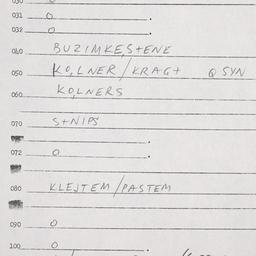 030
031 O .
032 O .
040 BUZIMKESTENE
050 KO,LNER/KRAGT Q SYN
060 KO,LNERS
070 STNIPS
072 O .
080 KLEJTEM/PASTEM
090 O
100 O .